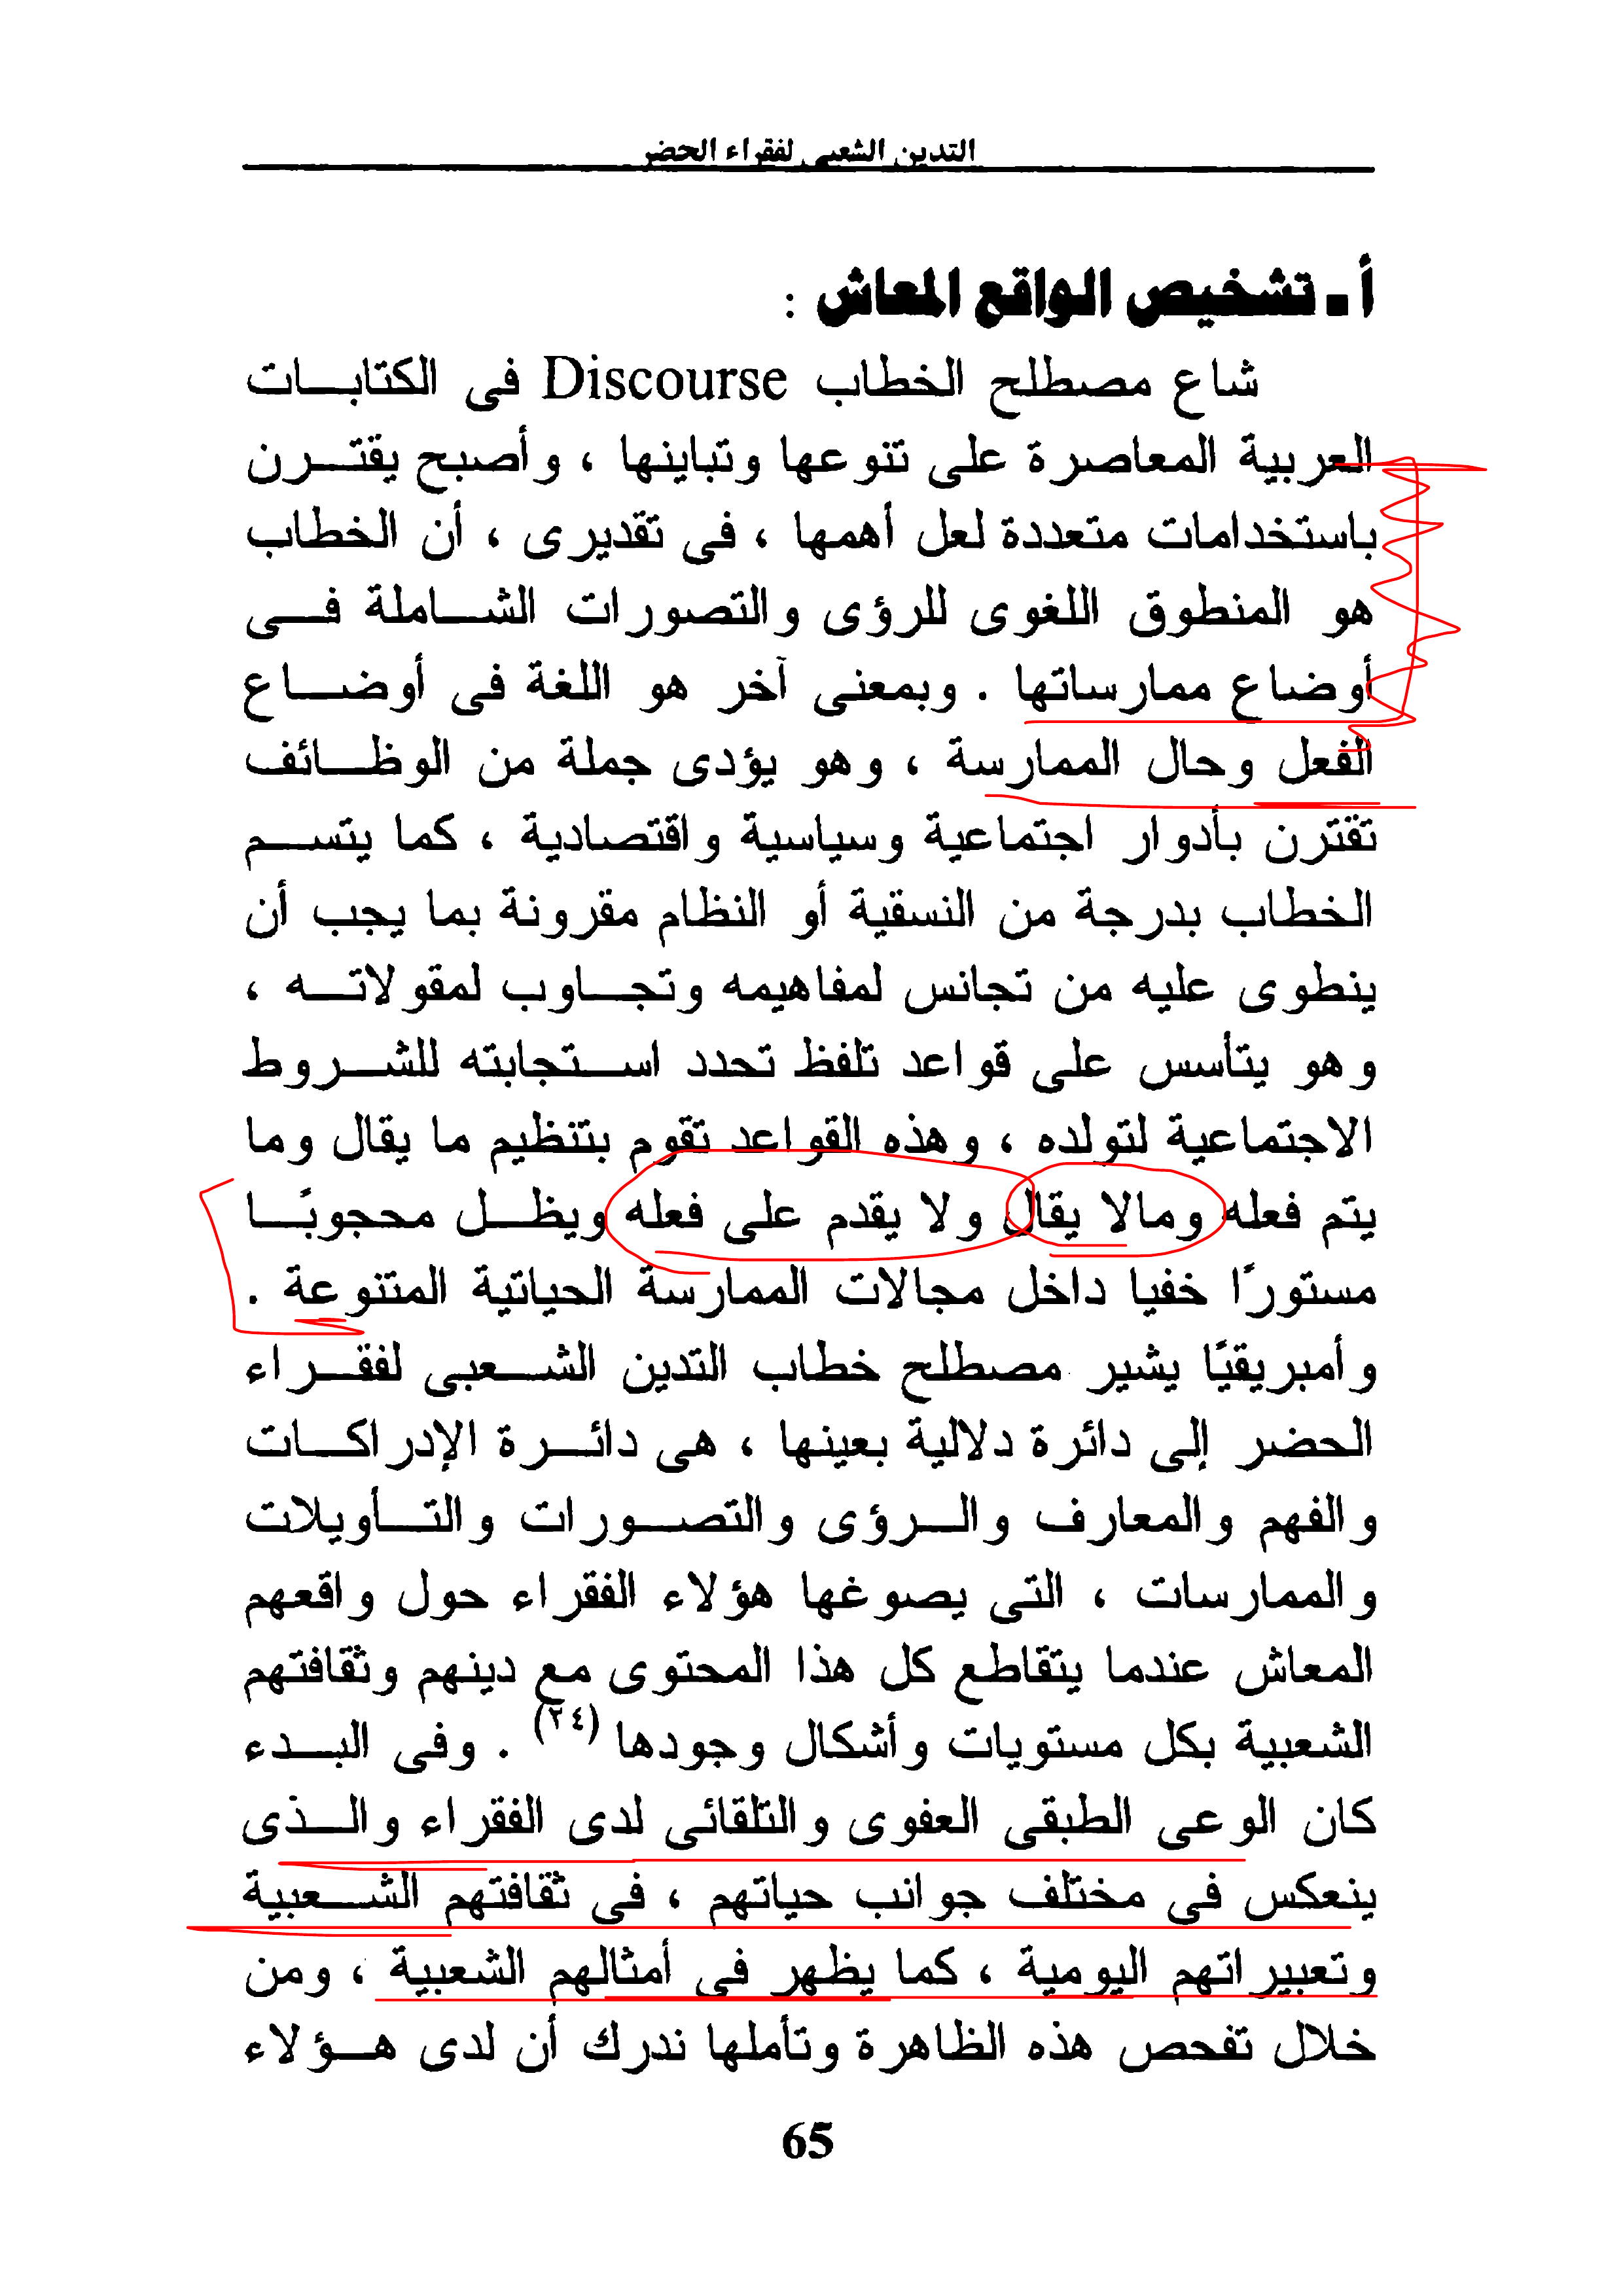 التدين الشعبى لفقراء الحضر
أ ـ تشخيص الواقع المعاش :
شاع مصطلح الخطاب Discourse فى الكتابات
العربية المعاصرة على تنوعها وتباينها ، وأصبح يقترن
باستخدامات متعددة لعل أهمها ، فى تقديرى ، أن الخطاب
هو المنطوق اللغوى للرؤى والتصورات الشاملة فى
أوضاع ممارساتها . وبمعنى آخر هو اللغة فى أوضاع
الفعل وحال الممارسة ، وهو يؤدى جملة من الوظائف
تقترن بأدوار اجتماعية وسياسية واقتصادية ، كما يتسم
الخطاب بدرجة من النسقية أو النظام مقرونة بما يجب أن
ينطوى عليه من تجانس لمفاهيمه وتجاوب لمقولاته ،
وهو يتأسس على قواعد تلفظ تحدد استجابته للشروط
الاجتماعية لتولده ، وهذه القواعد تقوم بتنظيم ما يقال وما
يتم فعله ومالا يقال ولا يقدم على فعله ويظل محجوبًا
مستورًا خفيا داخل مجالات الممارسة الحياتية المتنوعة .
وأمبريقيًا يشير مصطلح خطاب التدين الشعبى لفقراء
الحضر إلى دائرة دلالية بعينها ، هى دائرة الإدراكات
والفهم والمعارف والرؤى والتصورات والتأويلات
والممارسات ، التى يصوغها هؤلاء الفقراء حول واقعهم
المعاش عندما يتقاطع كل هذا المحتوى مع دينهم وثقافتهم
الشعبية بكل مستويات وأشكال وجودها (٢٤) . وفى البدء
كان الوعى الطبقى العفوى والتلقائى لدى الفقراء والذى
ينعكس فى مختلف جوانب حياتهم ، فى ثقافتهم الشعبية
وتعبيراتهم اليومية ، كما يظهر فى أمثالهم الشعبية ، ومن
خلال تفحص هذه الظاهرة وتأملها ندرك أن لدى هؤلاء
65